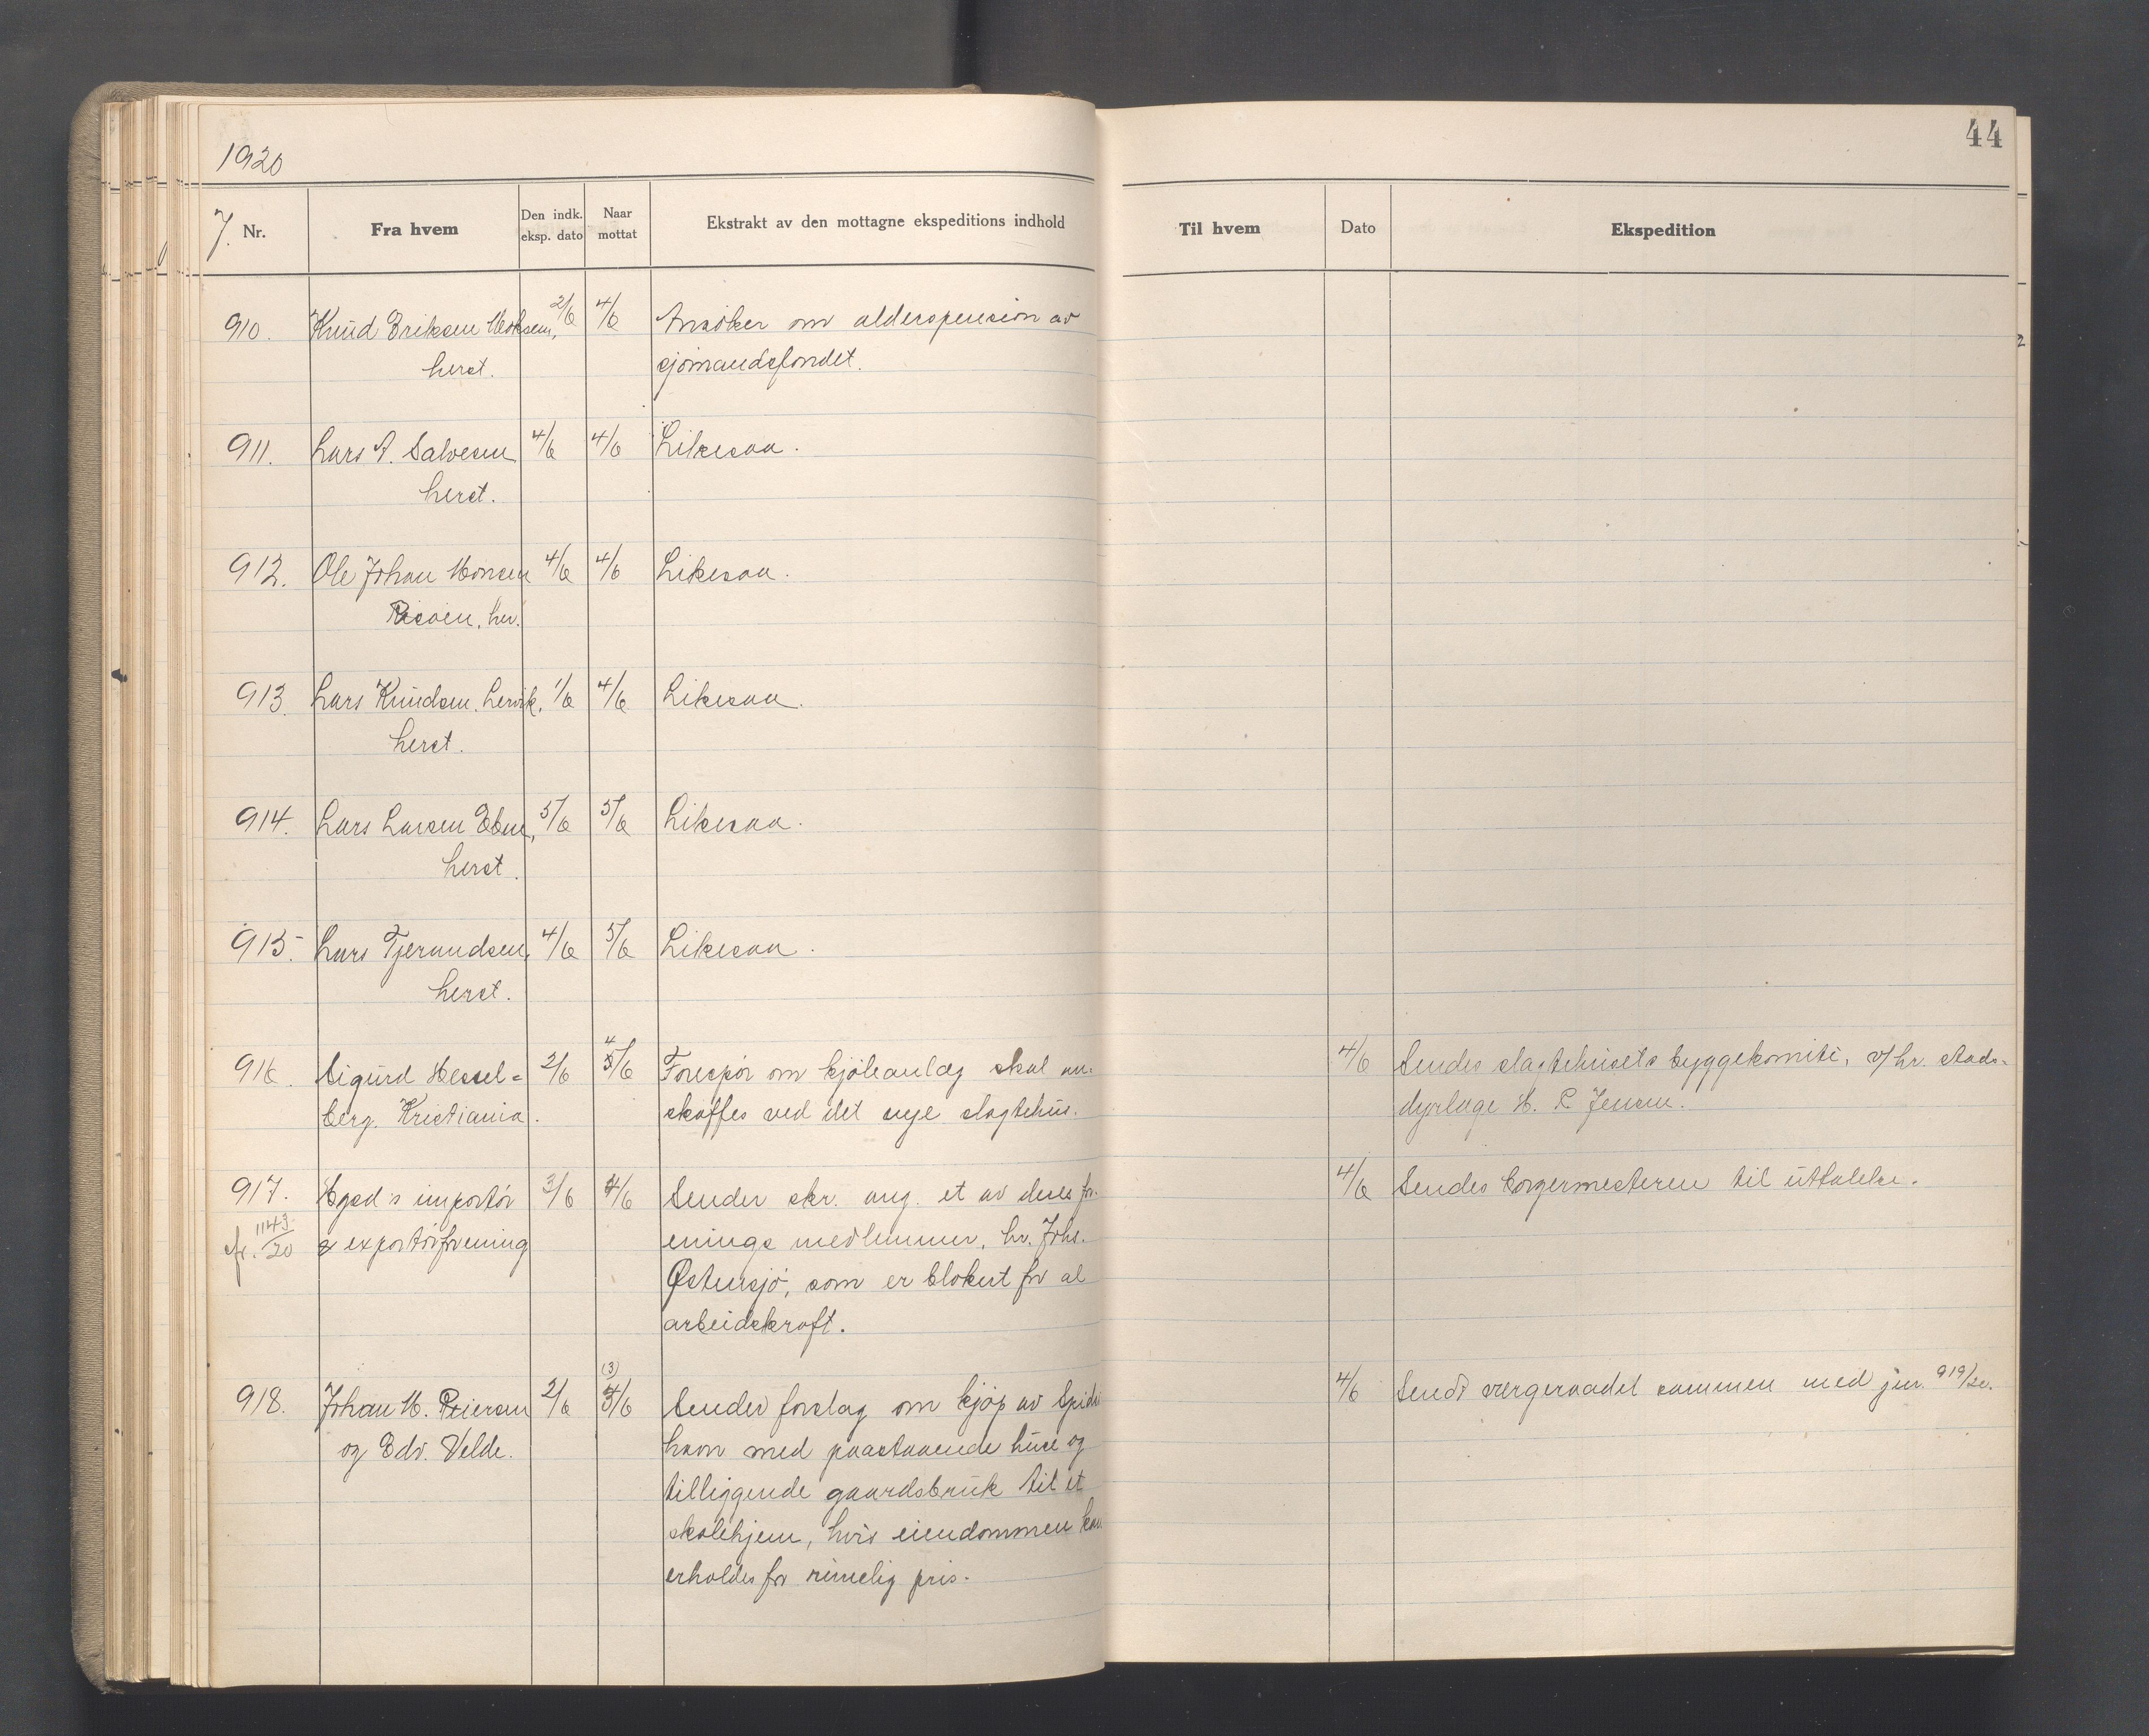 1920
44
J. Nr.
Fra hvem
Den indk. eksp. dato
Naar mottat
Ekstrakt av den mottagne ekspeditions indhold
Til hvem
Dato
Ekspedition
910. Knud Eriksen 2/6 4/6 Ansöker om alderspension av
herst. sjömandsfondet.
911. Lars A. Salvesen 4/6 4/6 Likesaa.
herst.
912. Ole Johan Monsen 4/6 4/6 Likesaa.
Risöen, her.
913. Lars Knudsen Lervik, 1/6 4/6 Likesaa.
herst.
914. Lars Larsen Eben, 5/6 5/6 Likesaa.
herst.
915. Lars Tjerandsen, 4/6 5/6 Likesaa.
herst.
916. Sigurd Hessel= 2/6 4/6 Forespör om kjöleanlæg skal an- 4/6 Sendes slagtehusets byggekomite, v/ hr. stads-
berg, Kristiania. skaffes ved det nye slagtehus. dyrlæge H. R. Jensen.
917. Hgsd's importör 3/6 4/6 Sender skr. ang. et av deres for- 4/6 Sendes borgermesteren til uttalelse.
cfr. 1143/20 & exportörforening enings medlemmer, hr. Johs.
Østensjö, som er blokert for al
arbeidskraft.
918. Johan M. Reiersen 2/6 (3) 3/6 Sender forslag om kjöp av Spids 4/6 Sendt vergeraadet sammen med jnr. 919/20.
og Edv. Velde. havn med paastaaende huse og
tilliggende gaardsbruk til et
skolehjem, hvis eiendommen kan
erholdes for rimelig pris.